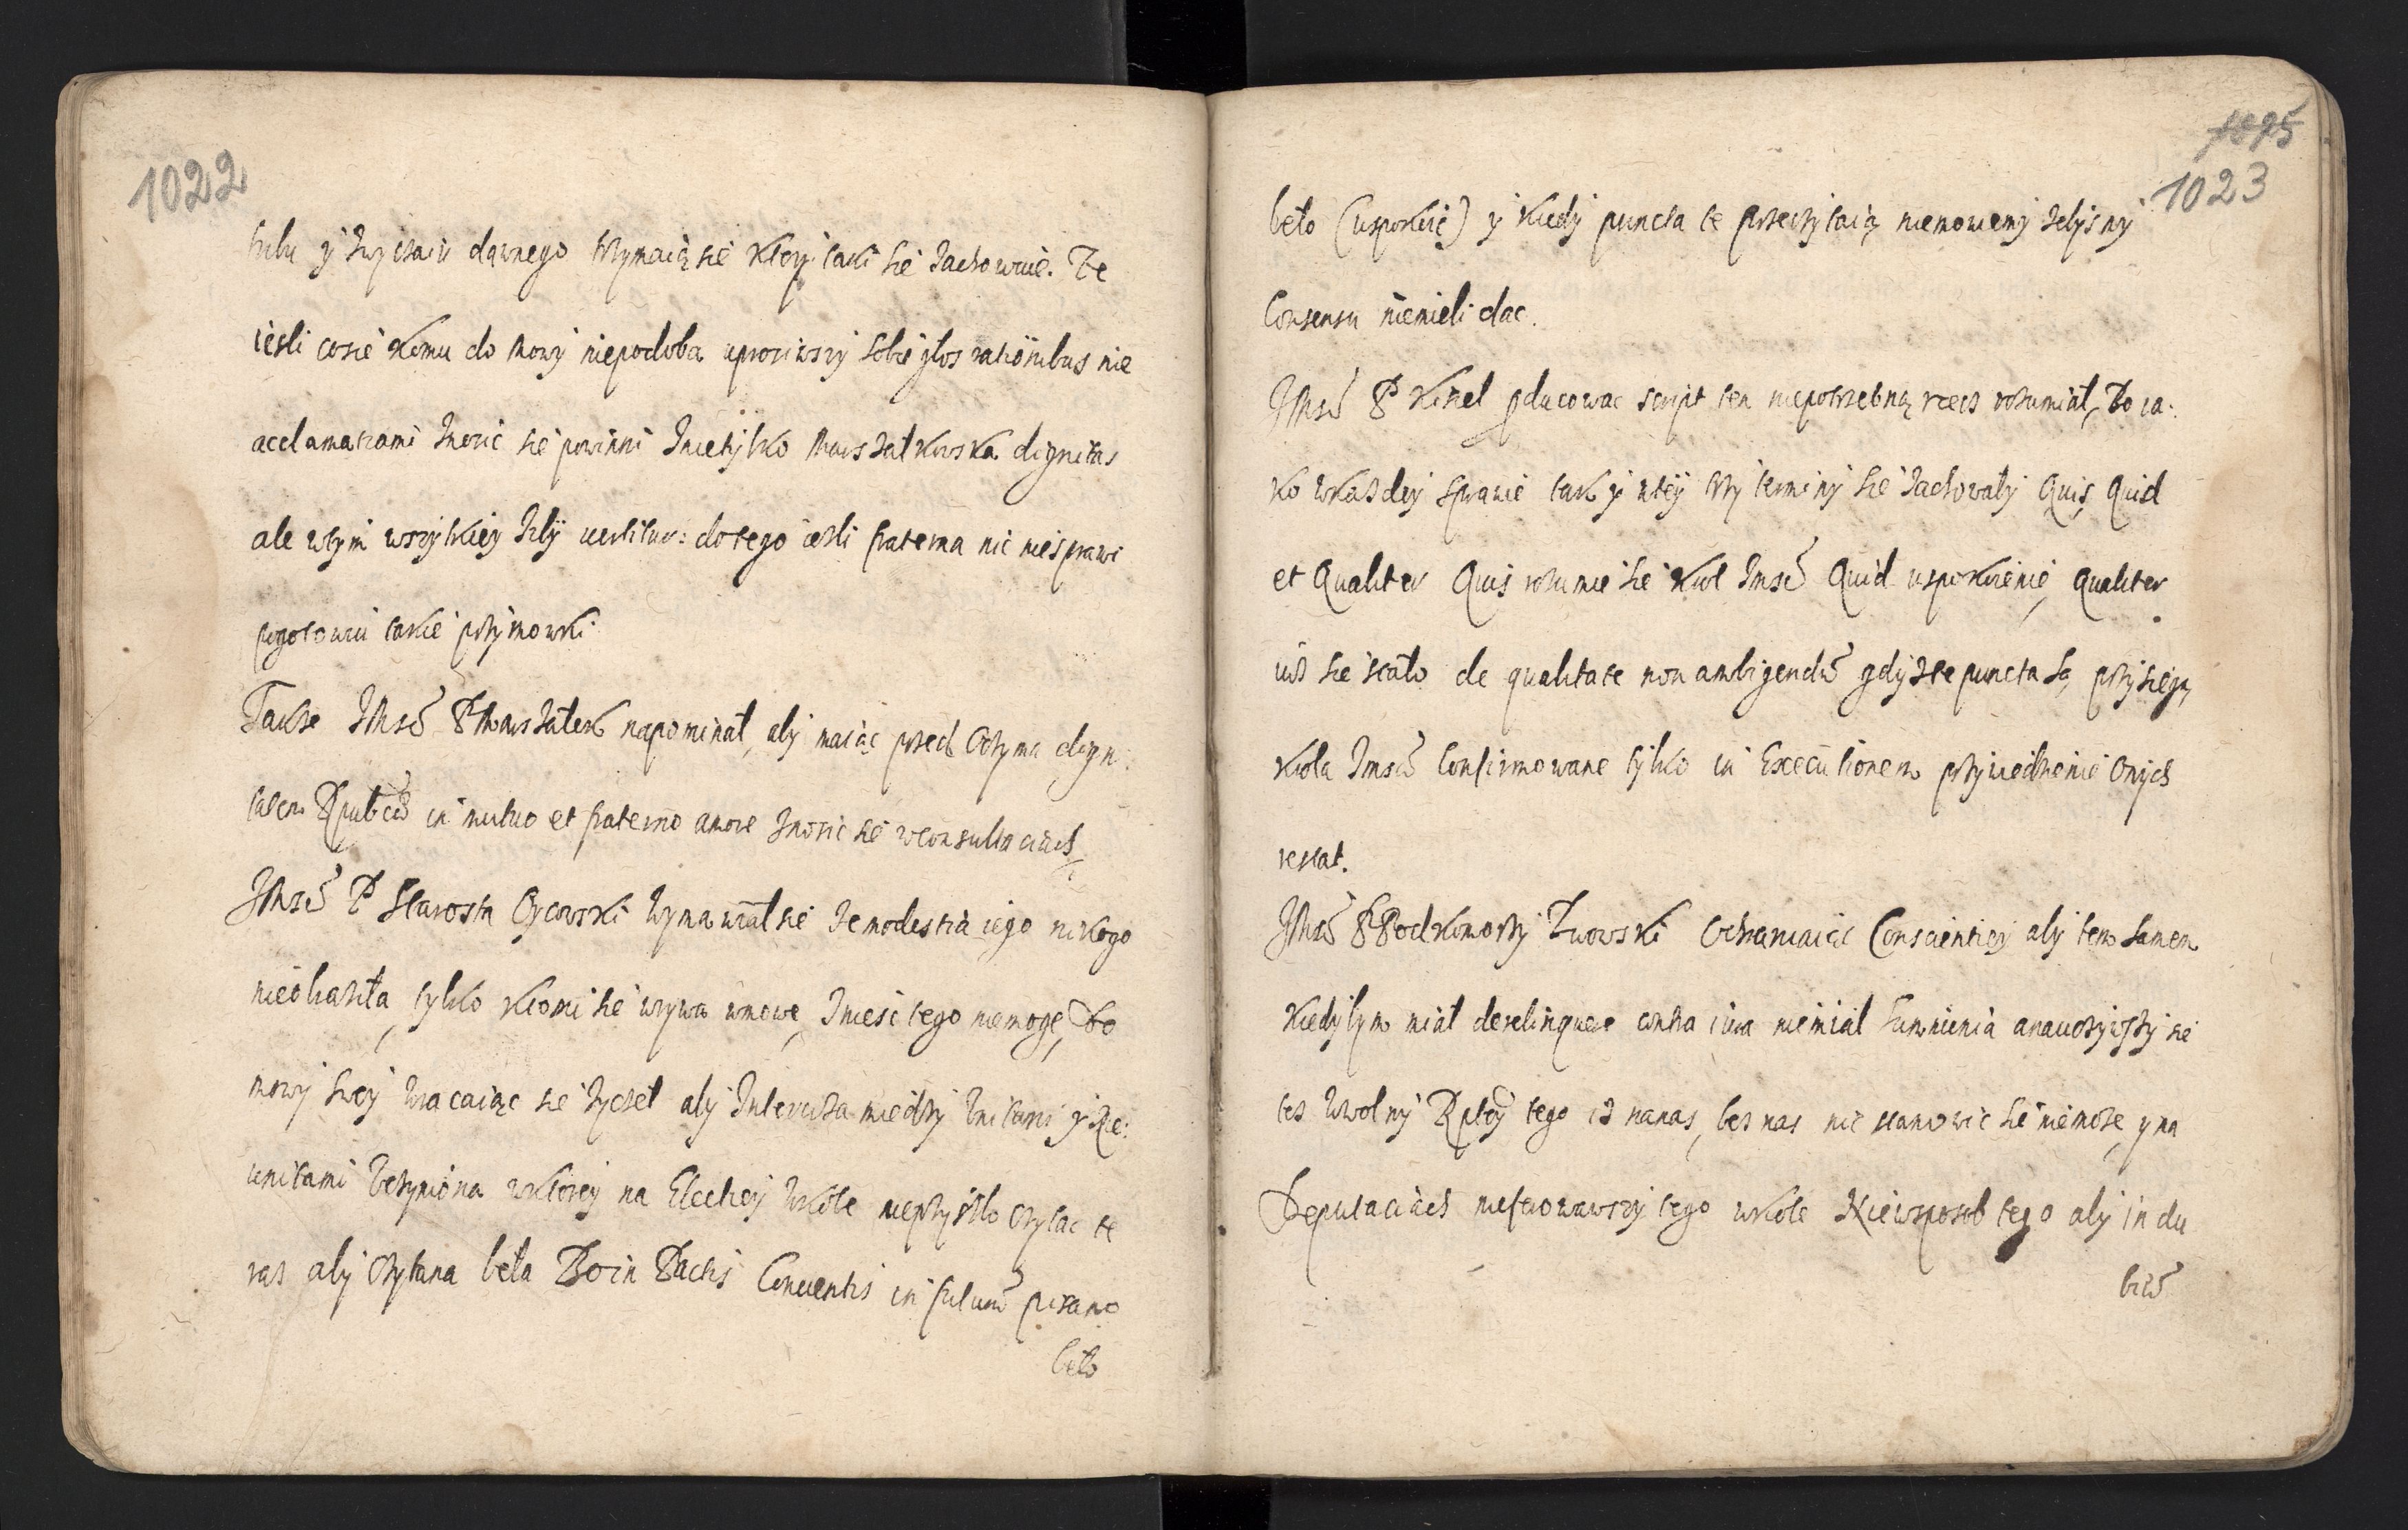 1022
y zwyczaiu dawnego trzymaią się ktory taki się zachowuie. Ze
iesli cosię komu do mowy niepodoba uprosiwszy sobie głos rationibus nie
acclamatiami znosic się powinni Inietylko Marszałkowska dignitas
ale wtym wszytkiey Izby vertitur: dotego iesli fraterna nic niesprawi
pogotowiu takie przymowki
Także JMsć P Marszałek napominał, aby maiąc przed oczyma digni:
tatem Rpublicae in mutuo et fraterno amore znosic się wconsultaciach
JMsć P Starosta Oycowski wymawiał się ze modestia iego nikogo
nieobraziła, tylko kto mi się wrywa wmowę, zniesc tego niemogę, do
mowy swey wracaiąc się zyczeł aby miedzy Unitami y Nie:
unitami uczyniona wktorey na Electiey wkole nieprzyszło czytac te
raz aby czytana beła Bo in Pactis Conventis in futurum pisano
beło
1025
1023
beło (uspokoić) y kiedy puncta te przeczytaią niemowemy zebysmy
Consensu niemieli dac.
JMsć P Kisiel producowac script ten niepotrzebną rzecz rozumiał, Bo ia:
ko wkazdey sprawie tak y wtey trzy terminy się zachowały Quis, Quid
et Qualiter Quis rozumie się Krol Imsć Quid uspokoienie, Qualiter
iuz się stało de qualitate non ambigendum gdyz te puncta są przysięgą
Krola Imsci Confirmowane tylko in Executionem przywiedzienie onych
restat.
JMsć P Podkomorzy Lwowski Ochraniaiąc Conscienciey aby tem samem
kiedybym miał derelinquere contra iura niemiał sumnienia się
bez wolney Rptey tego iz nanas, bez nas nic stanowic się niemoze, y na
Deputaciach tego wkole Niewsposob tego aby in du
bium